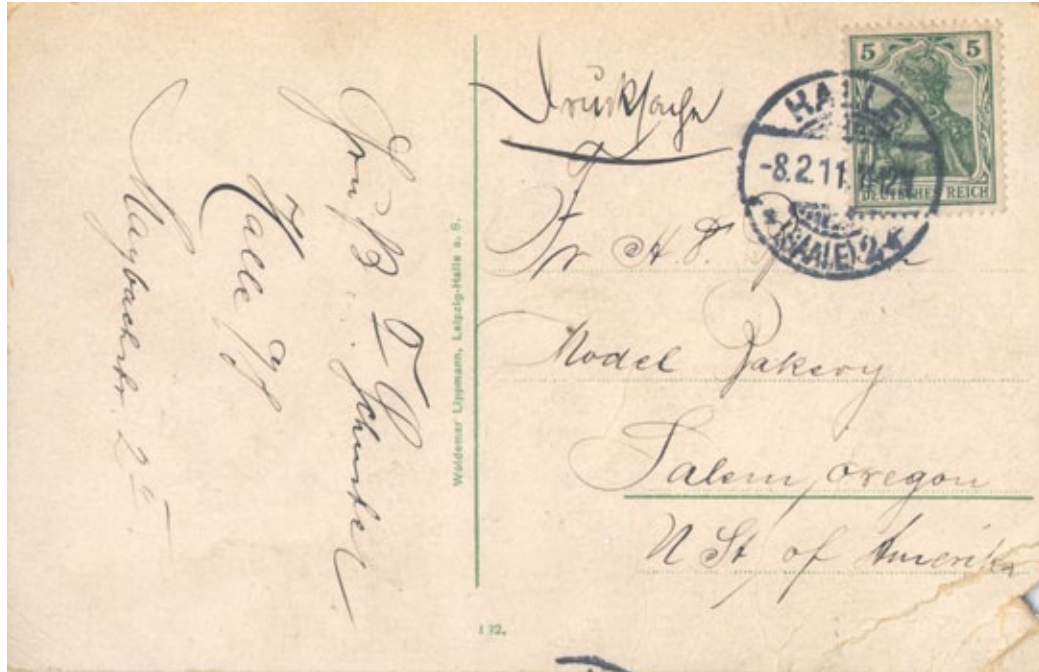 Gruß
Halle a/S
Maybachstr. 2
Woldemar Lippmann, Leipzig-Halle a. S.
132.
Drucksache
5 5
DEUTSCHES REICH
HALLE
-8.2.11.
*(SAALE)2*
Fr A.
Model Bakery
Salem, Oregon
U St of Amerika